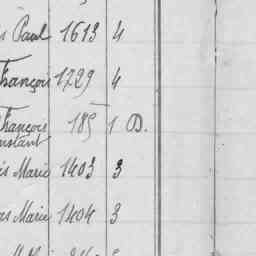 Paul 1613 4
François 1729 4
François 185 1 D.
Marie 1403 3
Marie 1404 3